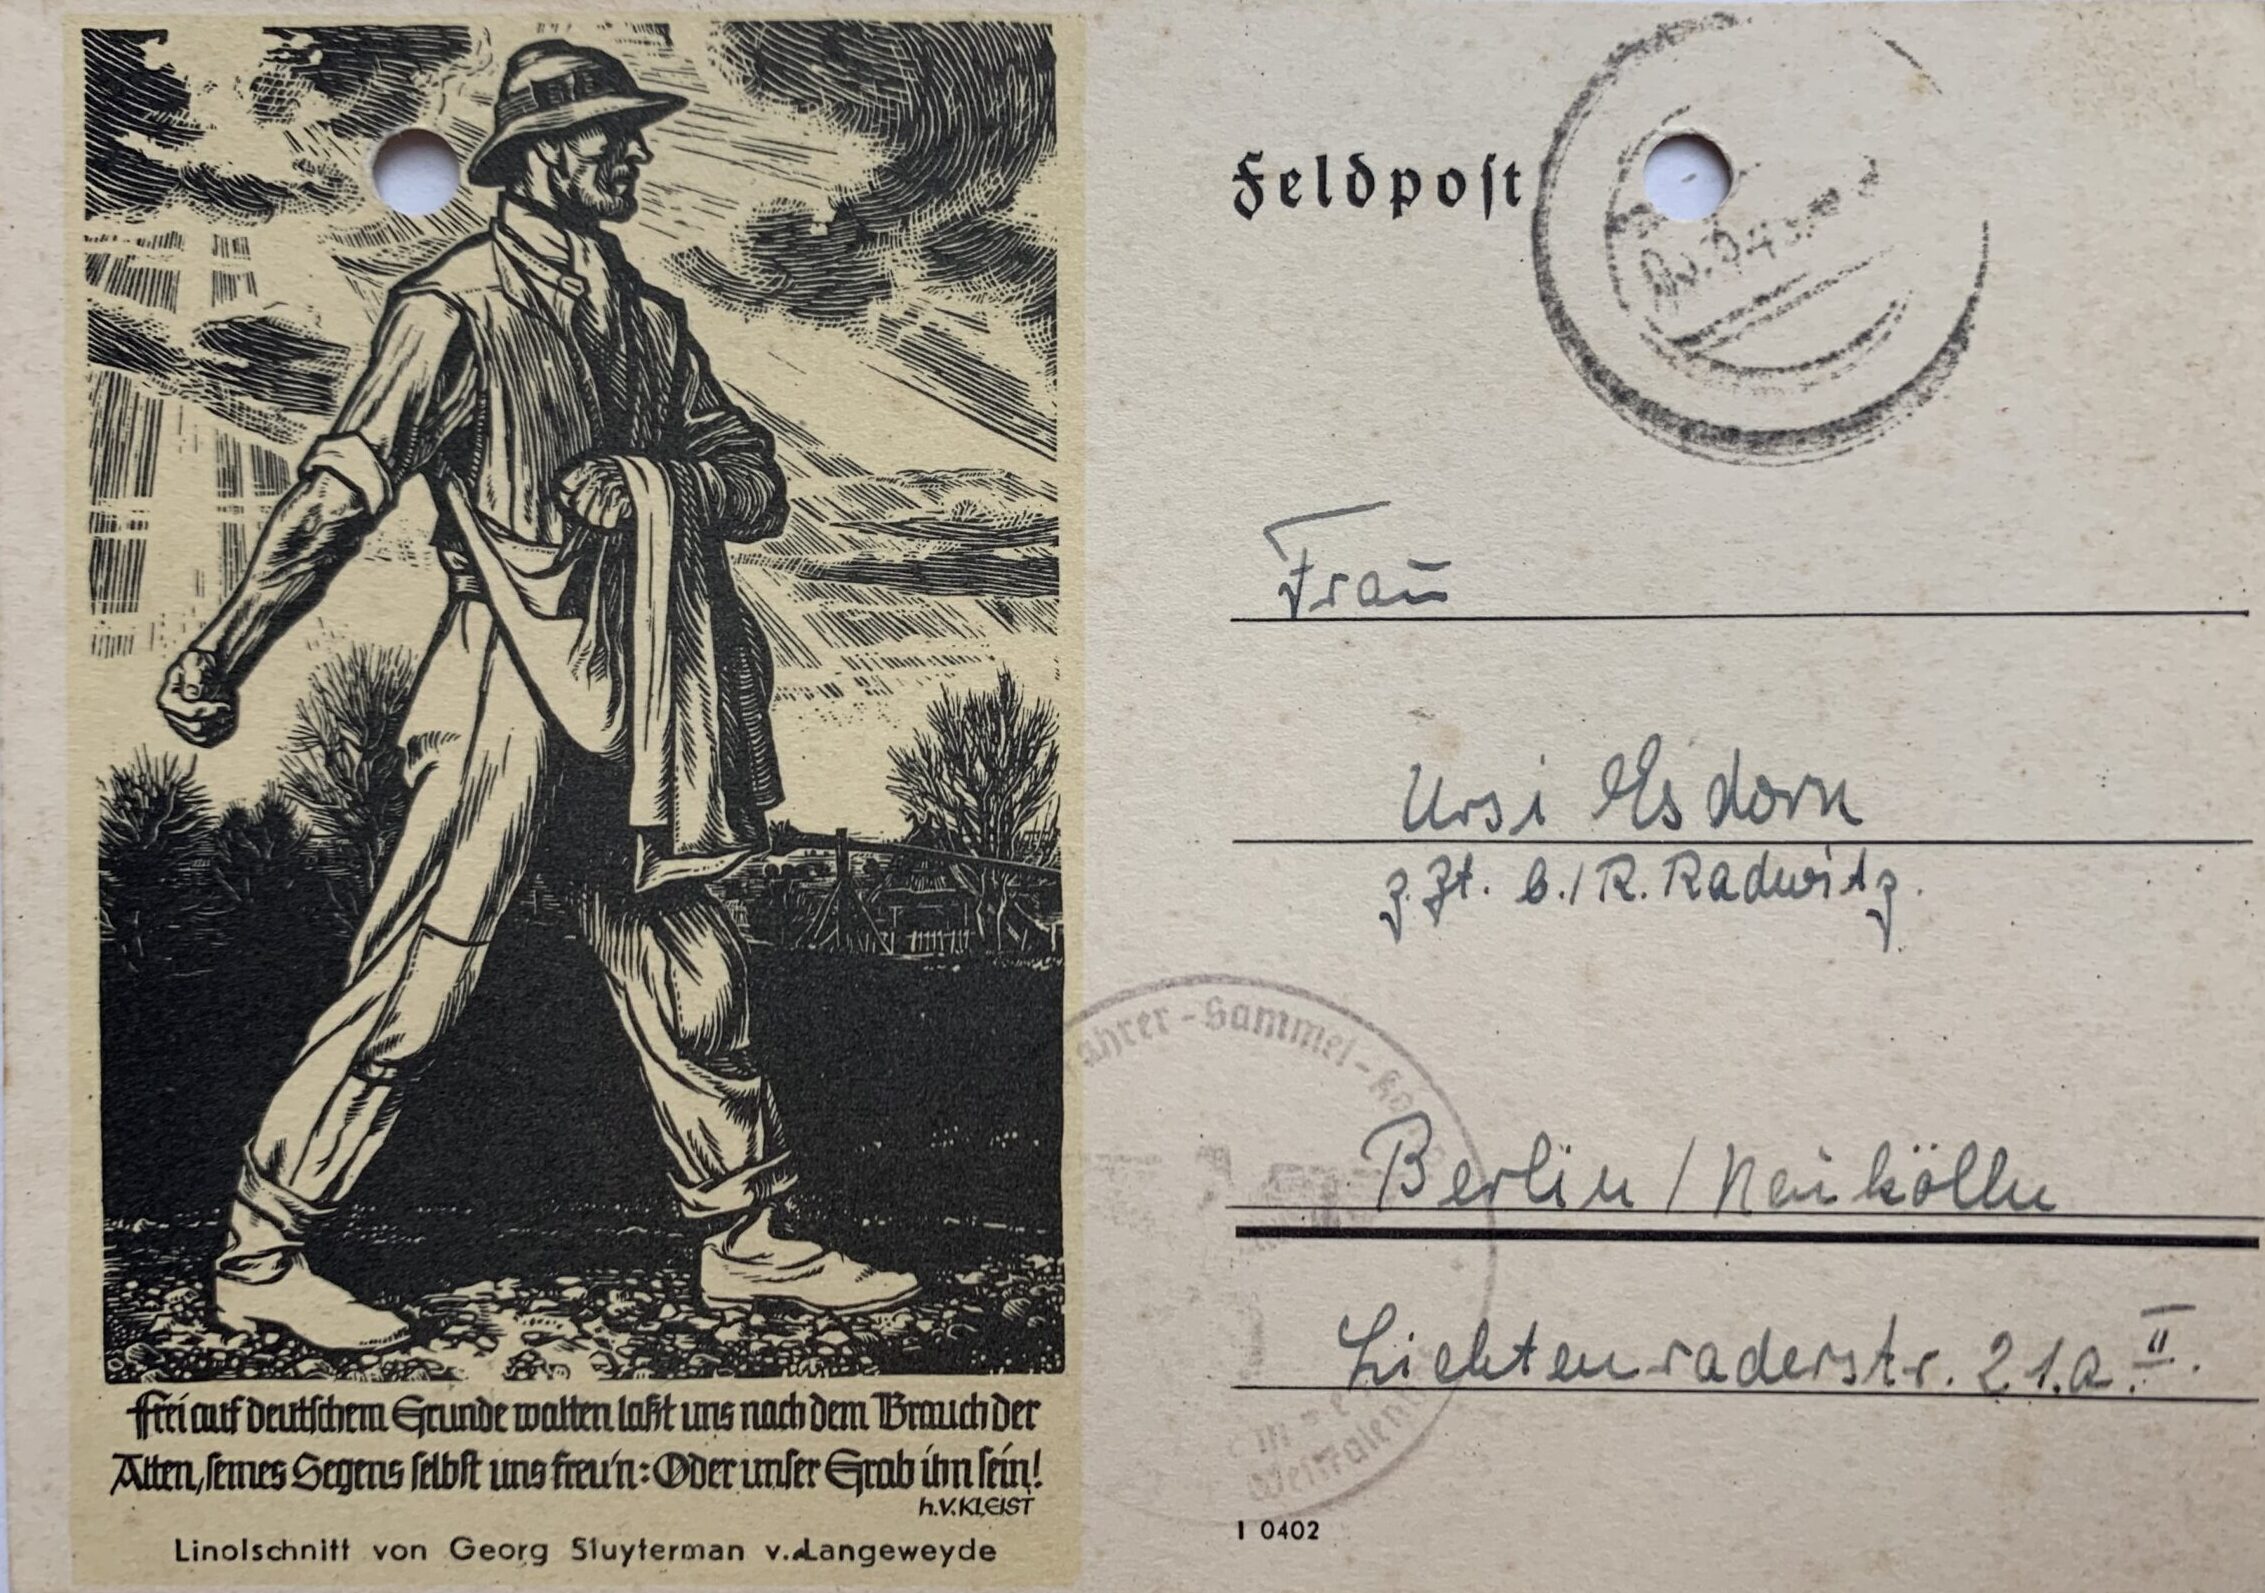 Frei auf deutschem Grunde walten laßt uns nach dem Brauch der
Alten, seines Segens selbst uns freu'n: Oder unser Grab ihn sein!
h.V.KLEIST
Linolschnitt von Georg Sluyterman v. Langeweyde
Feldpost
Frau
Ursi Esdorn
z. Zt. b./R. Radwitz.
Berlin/Neukölln
Lichtenraderstr. 21.a. II.
ahrer-Sammel-
Westfalen
I 0402